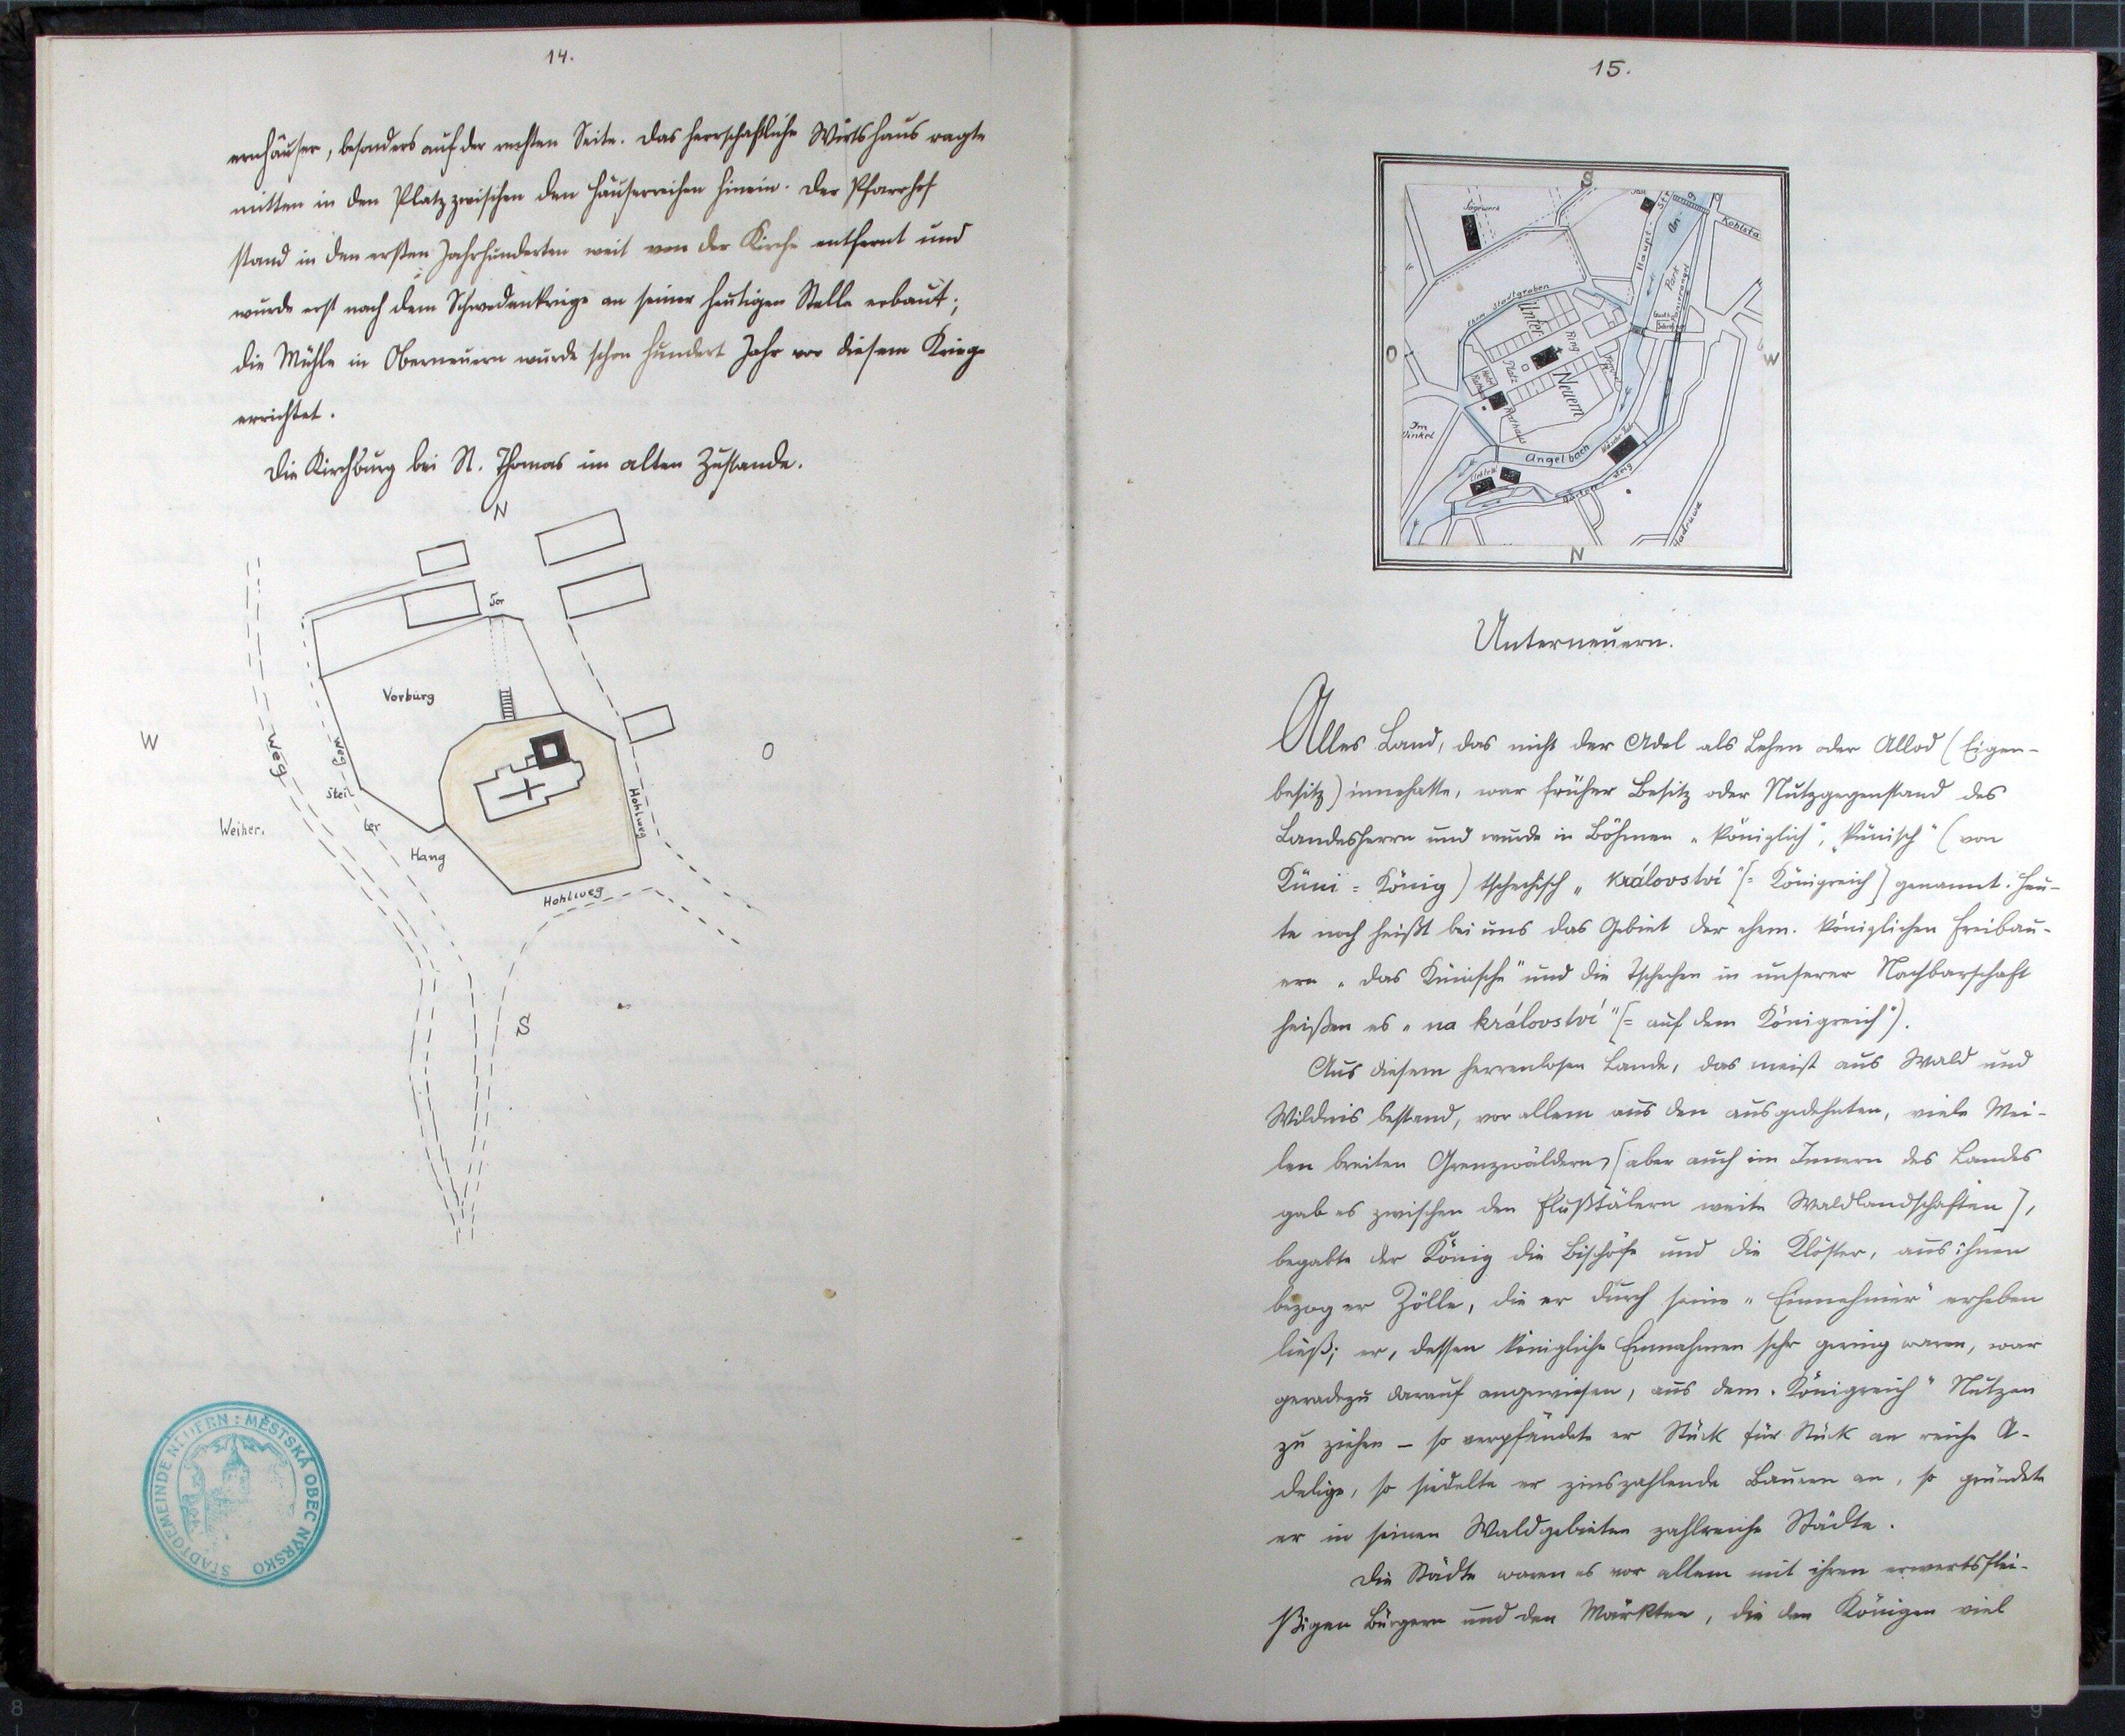 14.
ernhäuser, besonders auf der rechten Seite. Das herrschaftliche Wirtshaus ragte
mitten in den Platz zwischen den Häuserreihen hinein. Der Pfarrhof
stand in den ersten Jahrhunderten weit von der Kirche entfernt und
wurde erst nach dem Schwedenkriege an seiner heutigen Stelle erbaut;
die Mühle in Oberneuern wurde schon hundert Jahr vor diesem Kriege
errichtet.
Die Kirchburg bei St. Thomas im alten Zustande.
N
Tor
Vorburg
W
Weg
Weg
O
Steil
Hohlweg
Weiher.
ler
Hang
Hohlweg
S
STADTGEMEINDE NEUERN : MĚSTSKÁ OBEC NÝRSKO
15.
S
Sägewerk
Haupt
Str.
Kohlsta
Park
ehem. Stadtgraben
Unter
Ring
Platz
Neuern
Rathaus
O
W
Im
Winkel
Angelbach
Steg
Hadruwa
N
Unterneuern.
Alles Land, das nicht der Adel als Lehen oder Allod (Eigen-
besitz) innehatte, war früher Besitz oder Nutzgegenstand des
Landesherrn und wurde in Böhmen „königlich", „künisch" (von
Küni = König) tschechisch „království" (= Königreich) genannt. Heu-
te noch heißt bei uns das Gebiet der ehem. königlichen Freibau-
ern „das Künische" und die Tschechen in unserer Nachbarschaft
heißen es „na království" (= auf dem Königreich").
Aus diesem herrenlosen Lande, das meist aus Wald und
Wildnis bestand, vor allem aus den ausgedehnten, viele Mei-
len breiten Grenzwäldern, (aber auch im Innern des Landes
gab es zwischen den Flußtälern weite Waldlandschaften),
begabte der König die Bischöfe und die Klöster, aus ihnen
bezog er Zölle, die er durch seine „Einnehmer" erheben
ließ; er, dessen königliche Einnahmen sehr gering waren, war
geradezu darauf angewiesen, aus dem „Königreich" Nutzen
zu ziehen – so verpfändete er Stück für Stück an reiche A-
delige, so siedelte er zinszahlende Bauern an, so gründete
er in seinen Waldgebieten zahlreiche Städte.
Die Städte waren es vor allem mit ihren erwerbsflei-
ßigen Bürgern und den Märkten, die den Königen viel